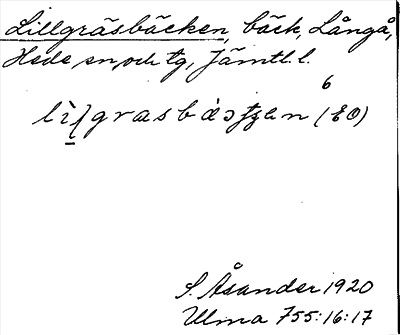 Lillgräsbäcken, bäck, Långå,
Hede sn och tg, Jämtl. l.
6
(EO)
S. Åsander 1920
Ulma 755:16:17